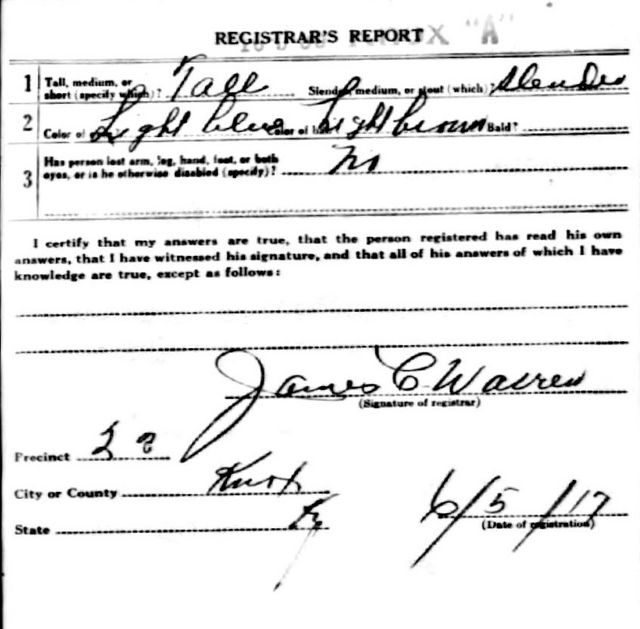 REGISTRAR'S REPORT "A"
1 Tall, medium, or short (specify which)? Tall Slender, medium, or stout (which)? Slender
2 Color of Light blue Color of hair Light brown Bald?
3 Has person lost arm, leg, hand, foot, or both
eyes, or is he otherwise disabled (specify)? No
I certify that my answers are true, that the person registered has read his own
answers, that I have witnessed his signature, and that all of his answers of which I have
knowledge are true, except as follows:
James C Warren
(Signature of registrar)
Precinct 22
City or County Knox
State Ky 6/5/17
(Date of registration)